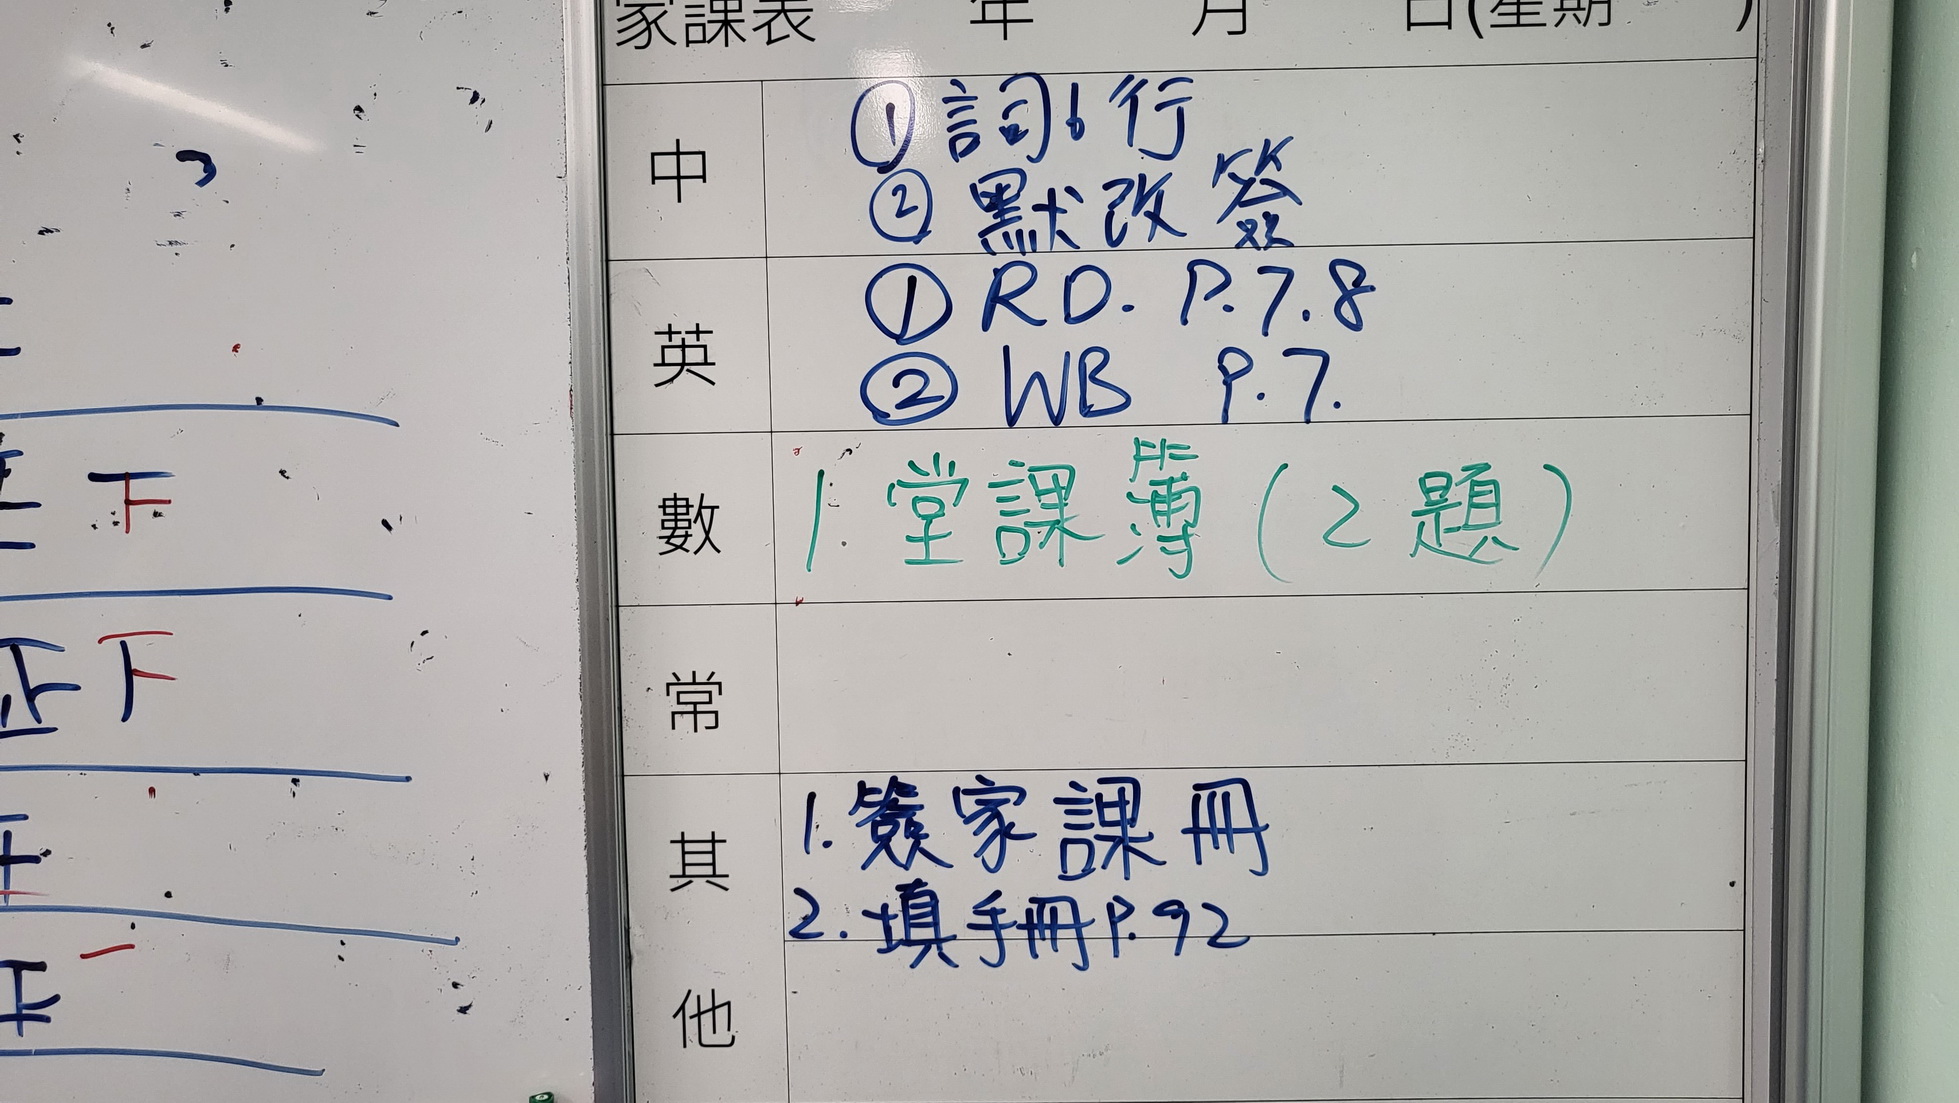 家課表 年 月 日(星期 )
中
①詞6行
②默改簽
英
① RD. P.7.8
② WB P.7.
數
1. 堂課簿(2題)
常
其他
1. 簽家課冊
2. 填手冊P.92
下
正下